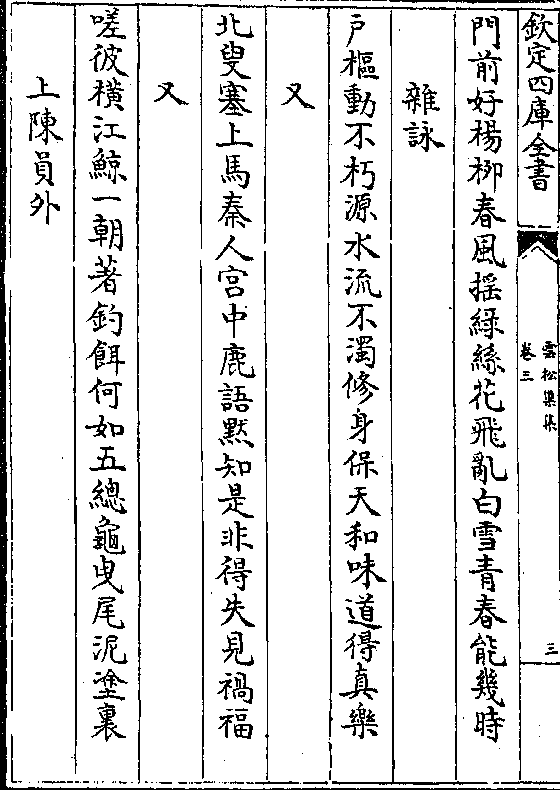 欽定四庫全書
雲松巢集
卷三
三
門前好楊柳春風揺緑絲花飛亂白雪青春能幾時
雜詠
戶樞動不朽源水流不濁修身保天和味道得真樂
又
北叟塞上馬秦人宫中鹿語黙知是非得失見禍福
又
嗟彼橫江鯨一朝著釣餌何如五總龜曵尾泥塗裏
上陳員外